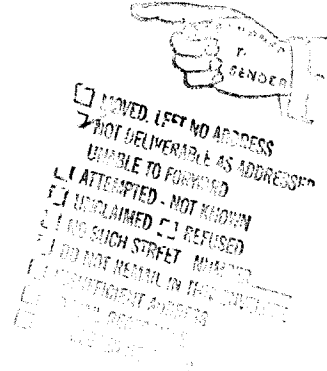 SENDER
MOVED, LEFT NO ADDRESS
NOT DELIVERABLE AS ADDRESSED
UNABLE TO FORWARD
ATTEMPTED - NOT KNOWN
UNCLAIMED REFUSED
NO SUCH STREET NUMBER
DO NOT REMAIL IN THIS ENVELOPE
INSUFFICIENT ADDRESS